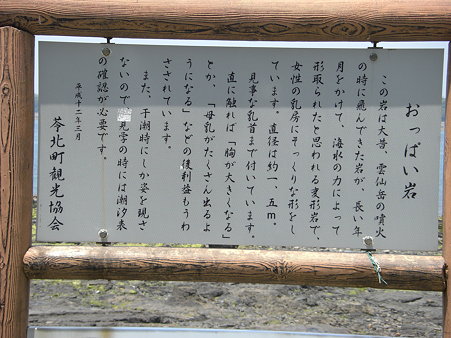 おっぱい岩
この岩は大昔、雲仙岳の噴火
の時に飛んできた岩が、長い年
月をかけて、海水の力によって
形取られたと思われる変形岩で、
女性の乳房にそっくりな形をし
ています。直径は約一．五m。
見事な乳首まで付いています。
直に触れば「胸が大きくなる」
とか、「母乳がたくさん出るよ
うになる」などの後利益もうわ
さされています。
また、干潮時にしか姿を現さ
ないので、見学の時には潮汐表
の確認が必要です。
平成十二年三月
苓北町観光協会